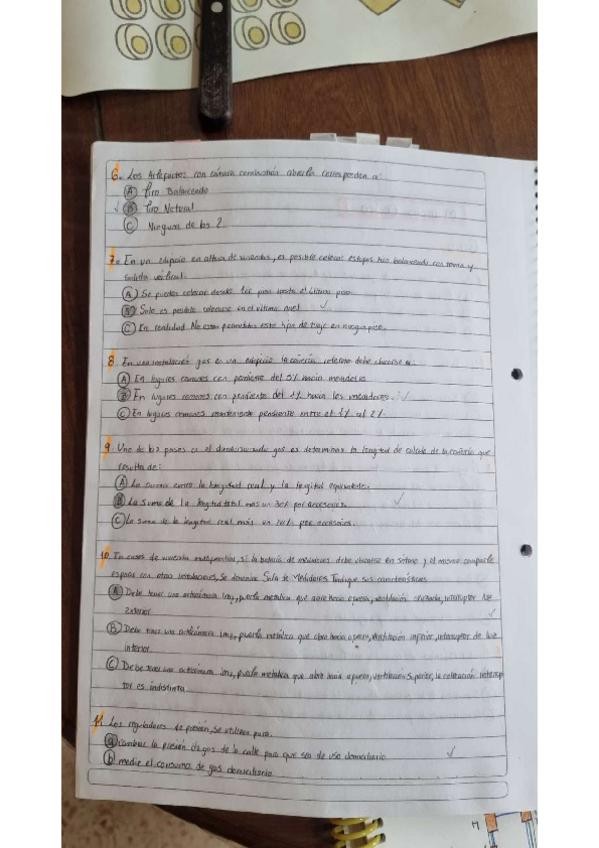 6. Los Artefactos con cámara combustión abierta corresponden a:
A Tiro Balanceado
B Tiro Natural
C Ninguna de las 2.
7. En un edificio en altura de viviendas, es posible colocar estufas tiro balanceado con toma y
salida vertical.
A Se pueden colocar desde 1er piso hasta el último piso
B Solo es posible colocarse en el último nivel
C En realidad No estan permitidos este tipo de en ningun piso.
8. En una instalación gas en un edificio la cañería interna debe ubicarse a:
A En lugares comunes con pendiente del 5% hacia medidores
B En lugares comunes con pendiente del 1% hacia los medidores.
C En lugares comunes pendiente entre el 1% al 2%
9. Uno de los pasos en el gas es determinar la longitud de calculo de la cañería que
resulta de:
A La suma entre la longitud real y la longitud equivalente.
B La suma de la longitud total mas un por accesorios.
C La suma de la longitud real más un por accesorios.
10. En casos de vivienda si la batería de medidores debe ubicarse en sótano y el mismo comparte
espacio con otras instalaciones, Se denomina Sala de Medidores Indique sus características
A Debe tener una antecámara puerta metálica que abre hacia ventilación cruzada, interruptor luz
exterior
B Debe tener una antecámara puerta metálica que abre hacia ventilación inferior, interruptor de luz
interior.
C Debe tener una antecámara puerta metálica que abre hacia ventilación Superior, la colocación interrup
tor es indistinta
11. Los reguladores de presión, se utilizan para.
a cambiar la presión de gas de la calle para que sea de uso domiciliario
b medir el consumo de gas domiciliario